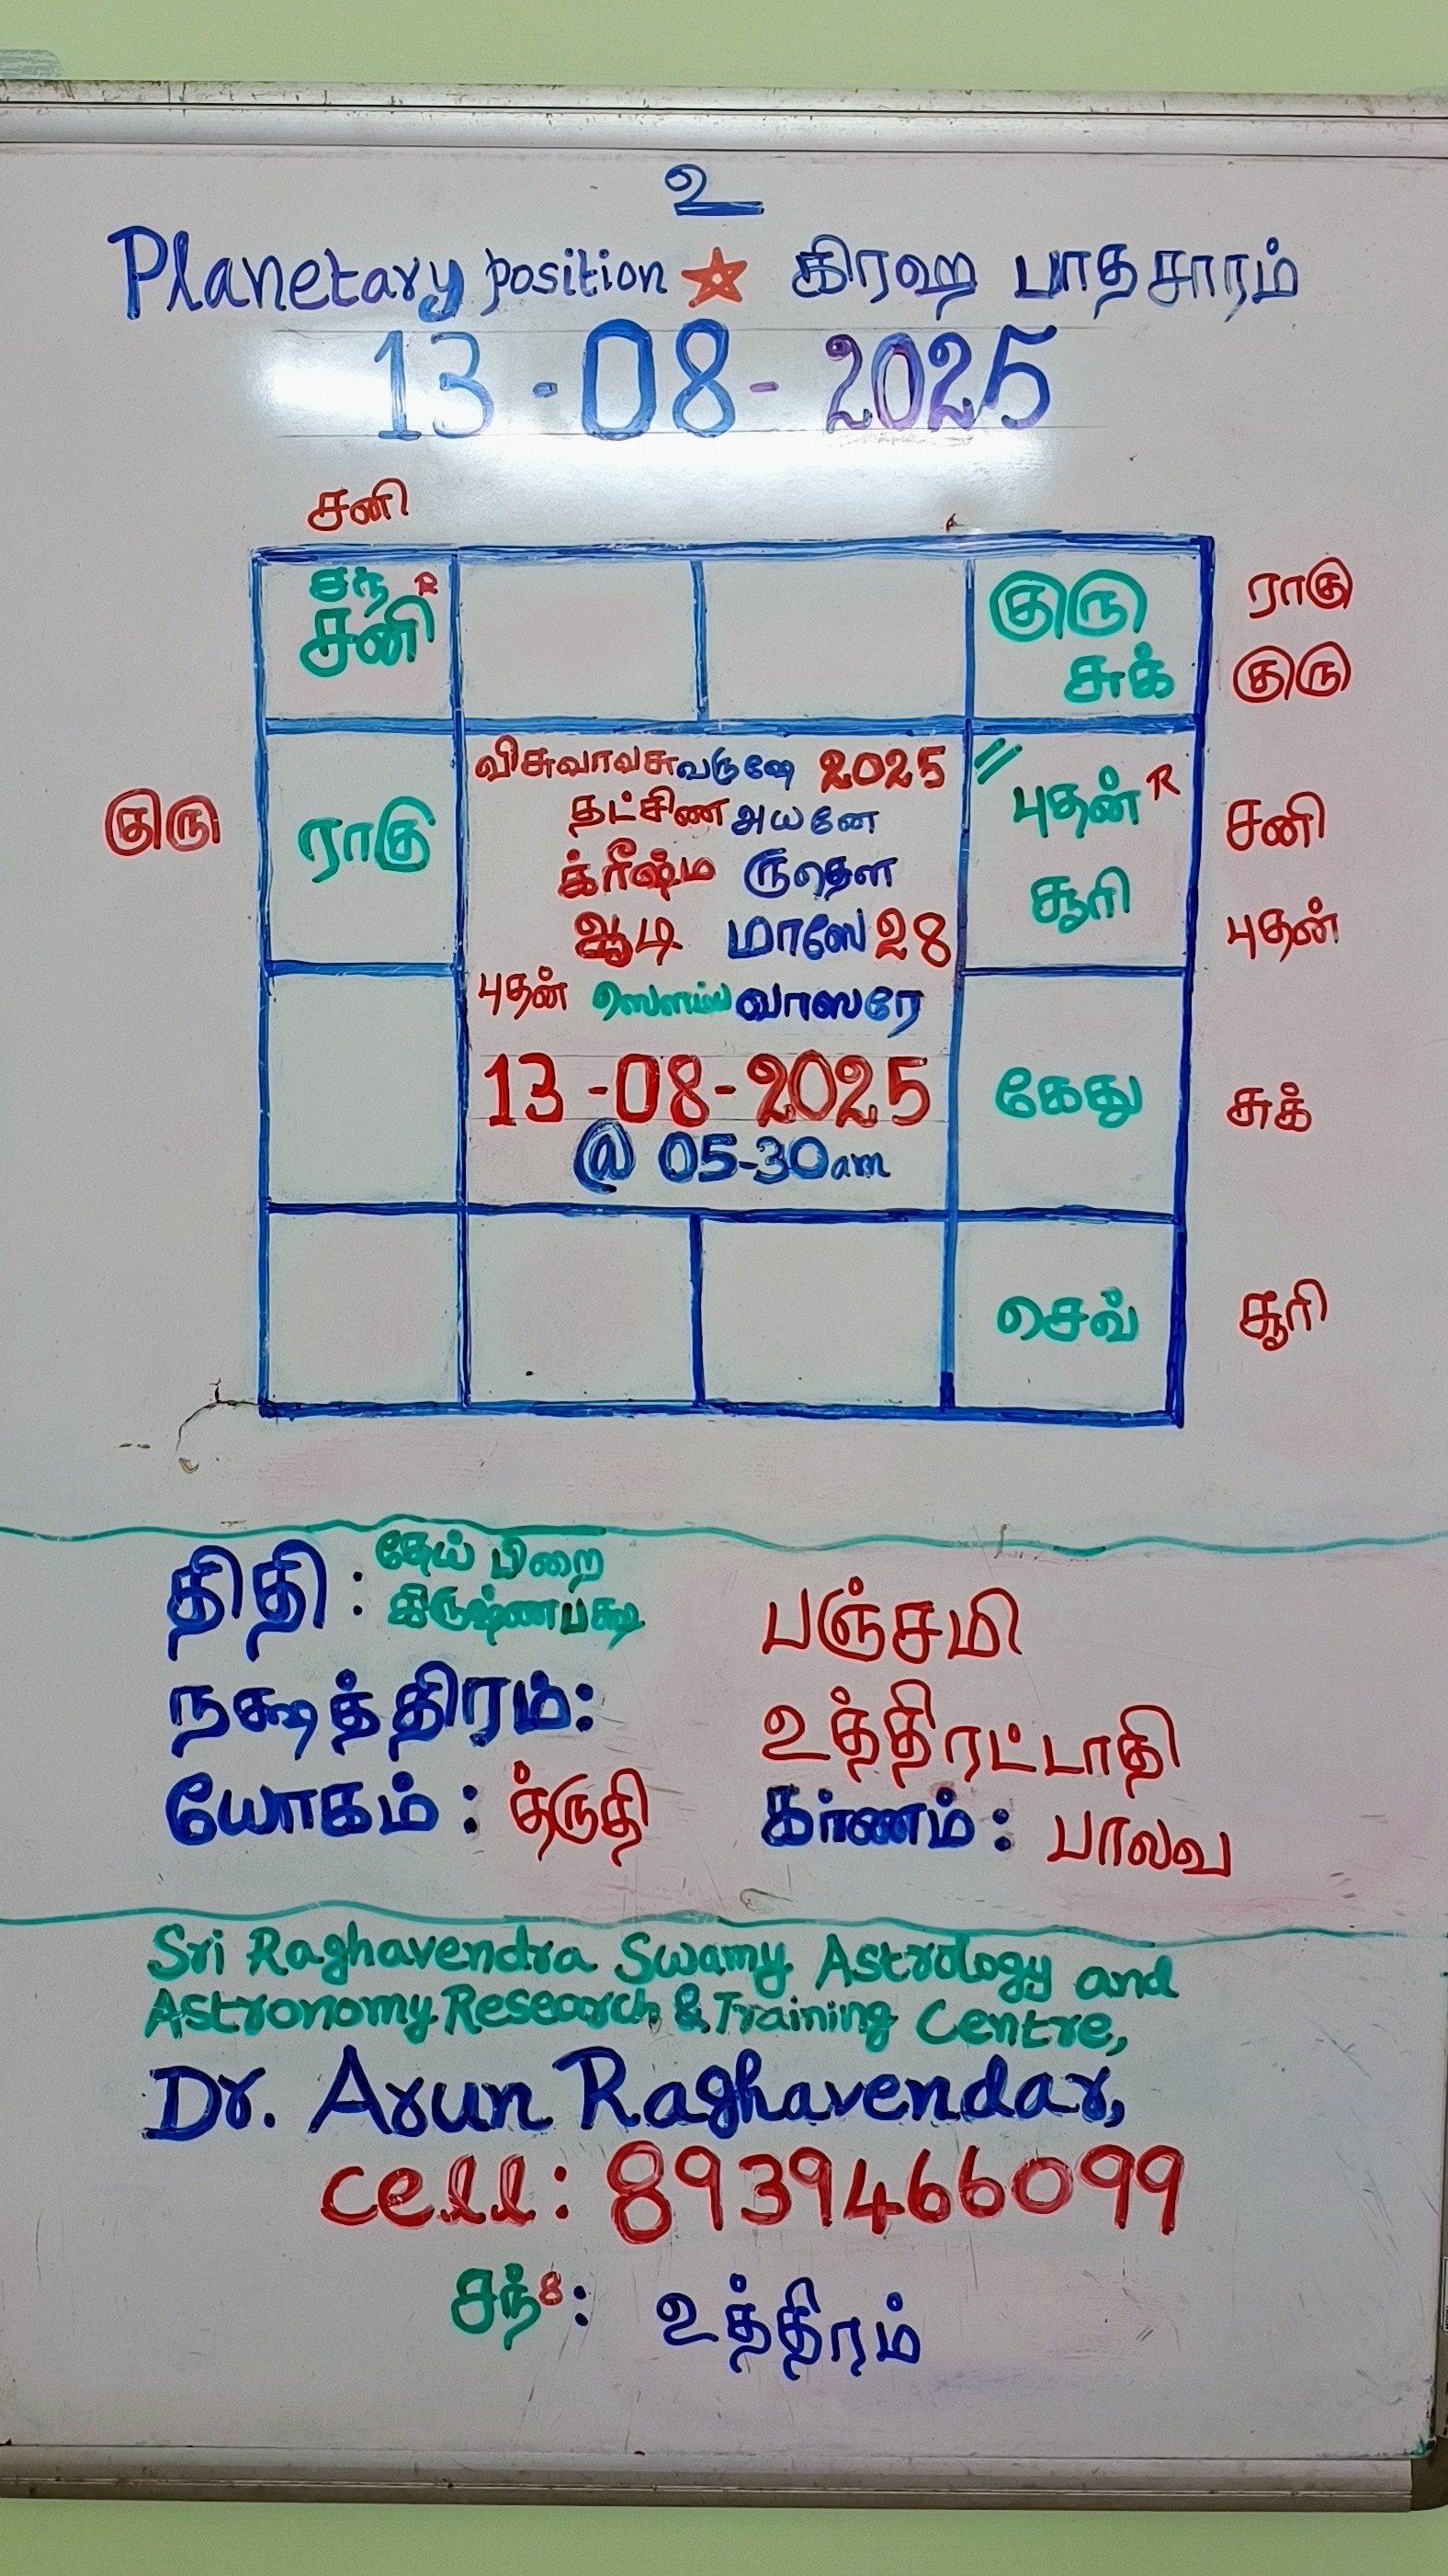 உ
Planetary position ★ கிரஹ பாதசாரம்
13-08-2025
சனி
சந் R
சனி
குரு
சுக்
ராகு
குரு
குரு
ராகு
விசுவாவசுவருஷே 2025
தட்சிண அயனே
க்ரீஷ்ம ருதௌ
ஆடி மாஸே 28
புதன் ஸௌம்ய வாஸரே
13-08-2025
@ 05-30am
// புதன் R
சூரி
சனி
புதன்
கேது
சுக்
செவ்
சூரி
திதி : தேய் பிறை கிருஷ்ணபக்ஷ பஞ்சமி
நக்ஷத்திரம்: உத்திரட்டாதி
யோகம் : த்ருதி கர்ணம் : பாலவ
Sri Raghavendra Swamy Astrology and
Astronomy Research & Training Centre,
Dr. Arun Raghavendar,
cell: 8939466099
சந் 8 : உத்திரம்